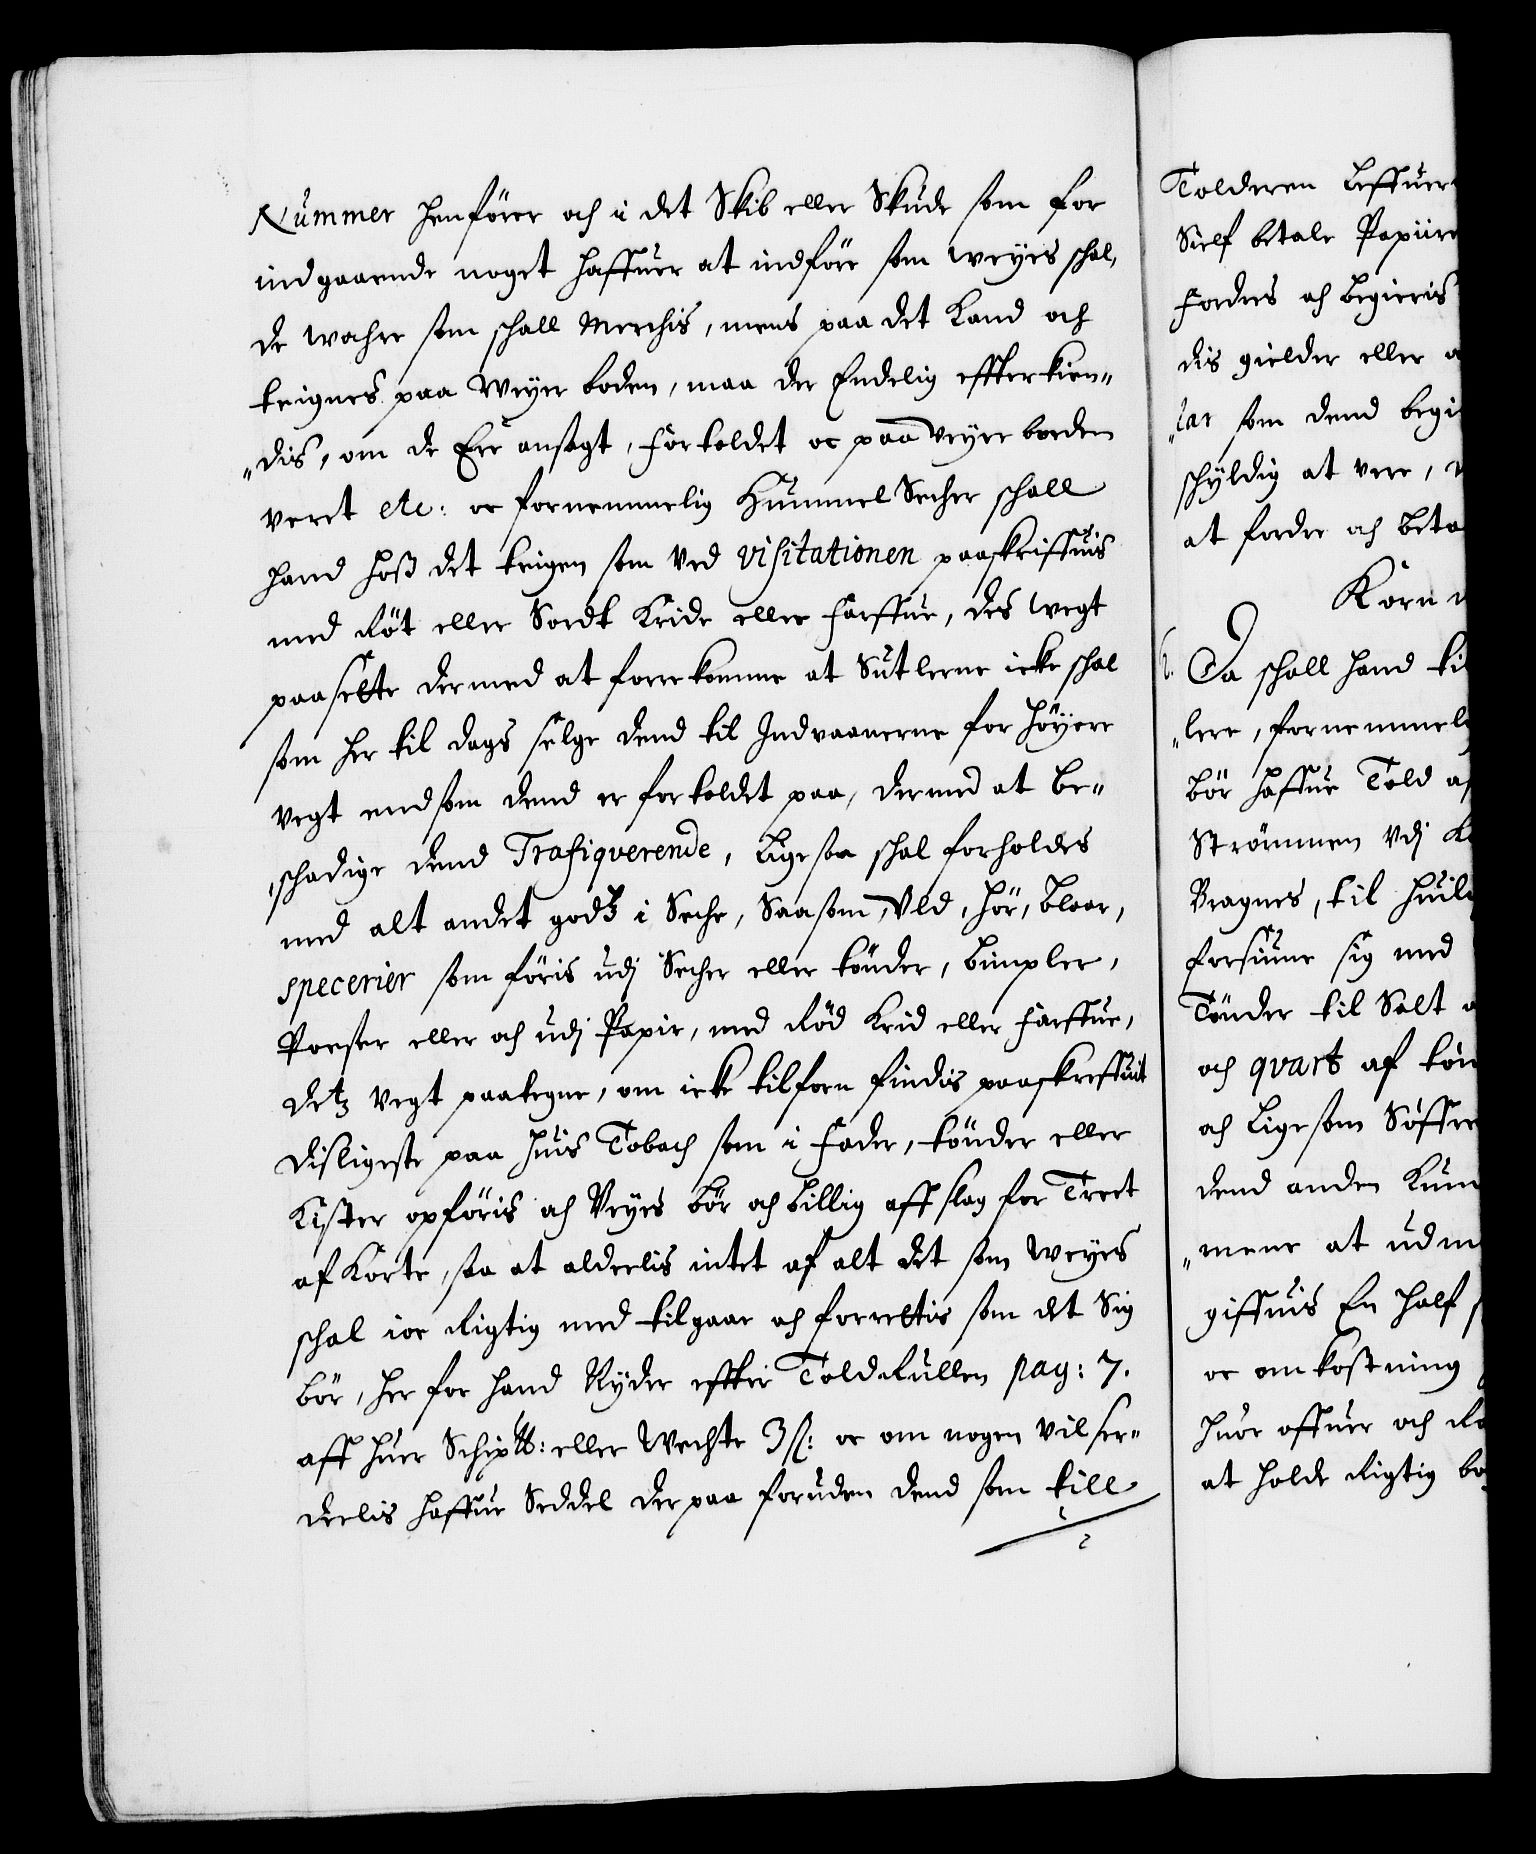 Nummer henförer och i det Skib eller Skude som for
indgaaende noget haffuer at indföre som weyes schal,
de wahre som schall Merchis, mens paa det Land och
teignes paa Weyer boden, maa der Endelig effterkien„
„dis, om de Ere ansagt, fortoldet oc paa veyer boeden
veret etc: oc fornemmelig Hummel Secher schall
hand hoß det teigen som ved Visitationen paaskriffuis
med Röt eller Sordt Kride eller farffue, des wegt
paasette dermed at forrekomme at Sutlerne icke schal
som her til dags selge dend til Indvaanerne for höyere
vegt end som dend er fortoldet paa, dermed at be„
„schadige dend Trafiqverende, Ligesaa schal forholdes
med alt andet godtz i Seche, Saasom, Uld, hör, blaar,
specerier som föris udj Secher eller tönder, bimpler,
Poeser eller och udj Papir, med Röd Krid eller farffue,
detz vegt paategne, om icke tilforn findis paaskreffuit
disligeste paa huis Toback som i fader, tönder eller
Kister opföris och Veyes bör och billig affslag for Treet
af Korte, saa at alderlis intet af alt det som weyes
schal ioe Rigtig med tilgaae och forrettis som det Sig
bör, her for hand Nyder effter Told Rullen pag: 7.
aff huer Schip ℔: eller Wechte 3 ß: oc om nogen vil ser„
deelis haffue Seddel derpaa foruden dend som till
Tolderen leffuer
Sielf betale Papiire
fordres och begieris
dis gielder eller
„lar som dend begi
schyldig at vere,
at fordre och beta
Korn
Da schall hand til
„lere, fornemmel
bör haffue Told af
Strömmen Vdj
Bragnes, til huil
forsiune sig med
Tönder til Salt
och qvart af tön
och Ligesom Söffer
dend anden Kum
„mene at udm
giffuis En half
oc omkostning
huor offuer och
at holde Rigtig